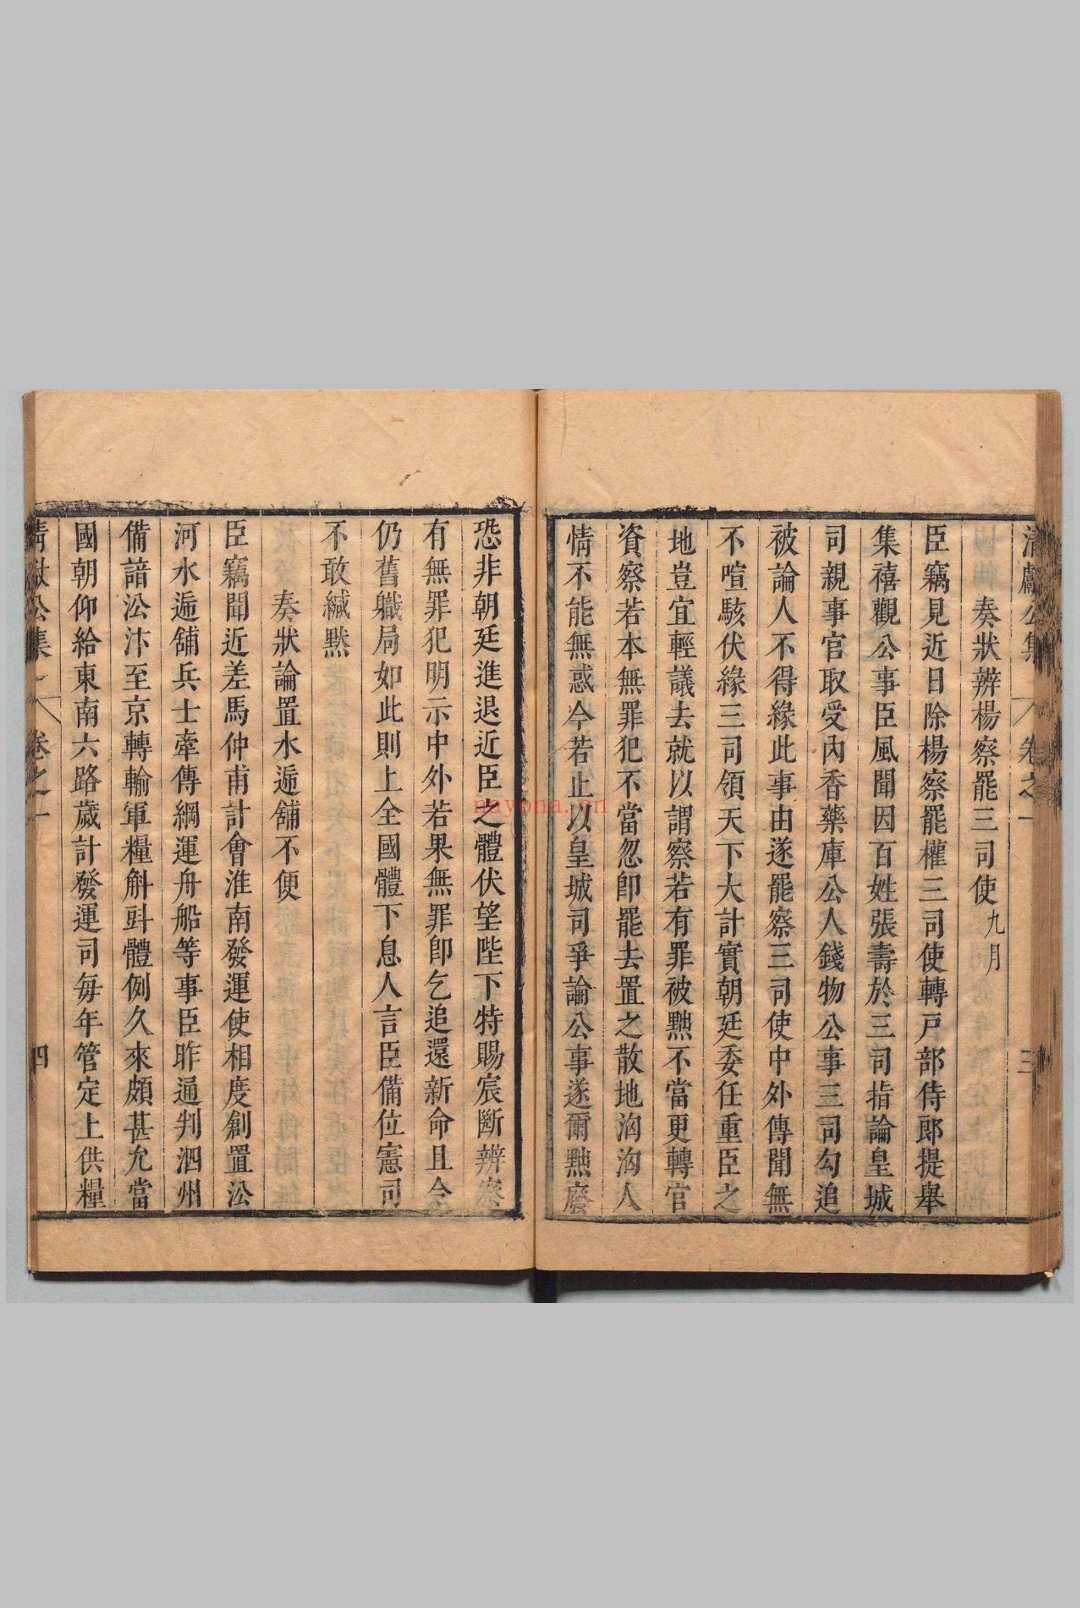 清獻公集 卷之一 三
奏狀辨楊察罷三司使九月
臣竊見近日除楊察罷權三司使轉戸部侍郎提舉
集禧觀公事臣風聞因百姓張壽於三司指論皇城
司親事官取受內香藥庫公人錢物公事三司勾追
被論人不得緣此事由遂罷察三司使中外傳聞無
不喧駭伏緣三司領天下大計實朝廷委任重臣之
地豈宜輕議去就以謂察若有罪被黜不當更轉官
資察若本無罪犯不當忽卽罷去置之散地洶洶人
情不能無惑今若止以皇城司爭論公事遂爾黜廢
恐非朝廷進退近臣之體伏望陛下特賜宸斷辨察
有無罪犯明示中外若果無罪卽乞追還新命且令
仍舊職局如此則上全國體下息人言臣備位憲司
不敢緘黙
奏狀論置水遞舖不便
臣竊聞近差馬仲甫計會淮南發運使相度創置㳂
河水遞舖兵士牽傳綱運舟船等事臣昨通判泗州
備諳㳂汴至京轉輸軍糧斛㪷體例久來頗甚允當
國朝仰給東南六路歲計發運司每年管定上供糧
清獻公集 卷之一 四
nayona.cn